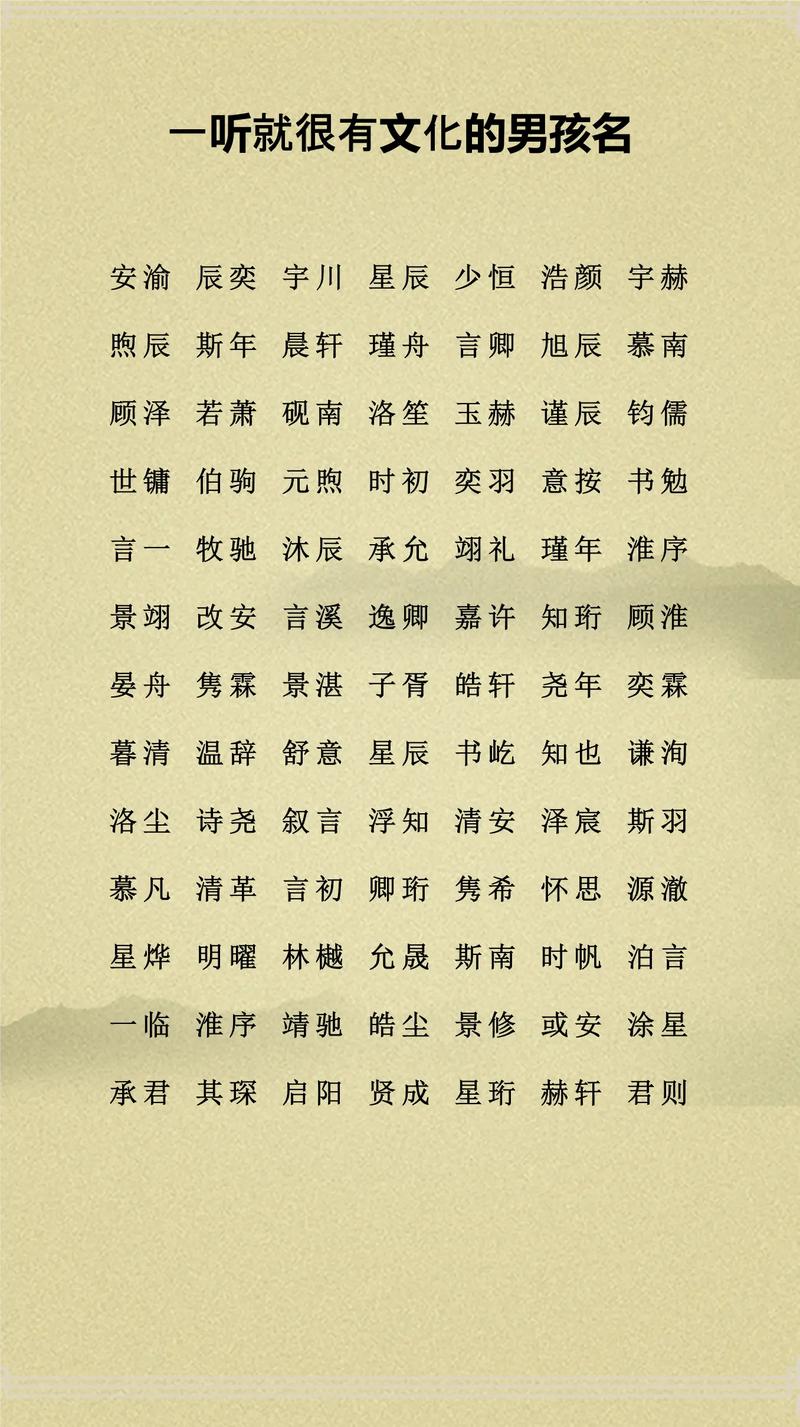 一听就很有文化的男孩名
安渝 辰奕 宇川 星辰 少恒 浩颜 宇赫
煦辰 斯年 晨轩 瑾舟 言卿 旭辰 慕南
顾泽 若萧 砚南 洛笙 玉赫 谨辰 钧儒
世镛 伯驹 元煦 时初 奕羽 意按 书勉
言一 牧驰 沐辰 承允 翊礼 瑾年 淮序
景翊 改安 言溪 逸卿 嘉许 知珩 顾淮
晏舟 隽霖 景湛 子胥 皓轩 尧年 奕霖
暮清 温辞 舒意 星辰 书屹 知也 谦洵
洛尘 诗尧 叙言 浮知 清安 泽宸 斯羽
慕凡 清革 言初 卿珩 隽希 怀思 源澈
星烨 明曜 林樾 允晟 斯南 时帆 泊言
一临 淮序 靖驰 皓尘 景修 或安 涂星
承君 其琛 启阳 贤成 星珩 赫轩 君则